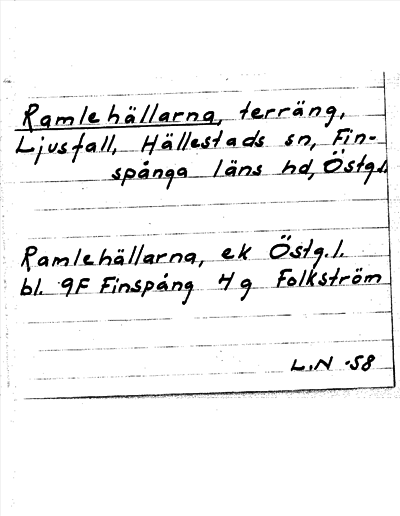 Ramlehällarna, terräng,
Ljusfall, Hällestads sn, Fin-
spånga läns hd, Östg.l.
Ramlehällarna, ek Östg.l.
bl. 9F Finspång 4g Folkström
L.N -58